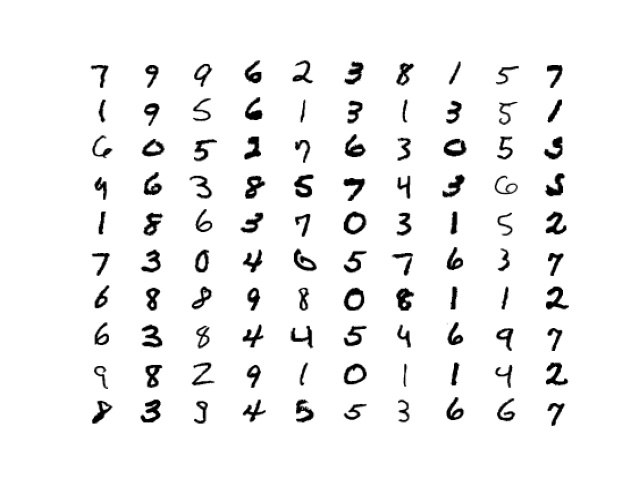 7 9 9 6 2 3 8 1 5 7
1 9 5 6 1 3 1 3 5 1
6 0 5 2 7 6 3 0 5 3
9 6 3 8 5 7 4 3 6 5
1 8 6 3 7 0 3 1 5 2
7 3 0 4 6 5 7 6 3 7
6 8 8 9 8 0 8 1 1 2
6 3 8 4 4 5 4 6 9 7
9 8 2 9 1 0 1 1 4 2
8 3 9 4 5 5 3 6 6 7